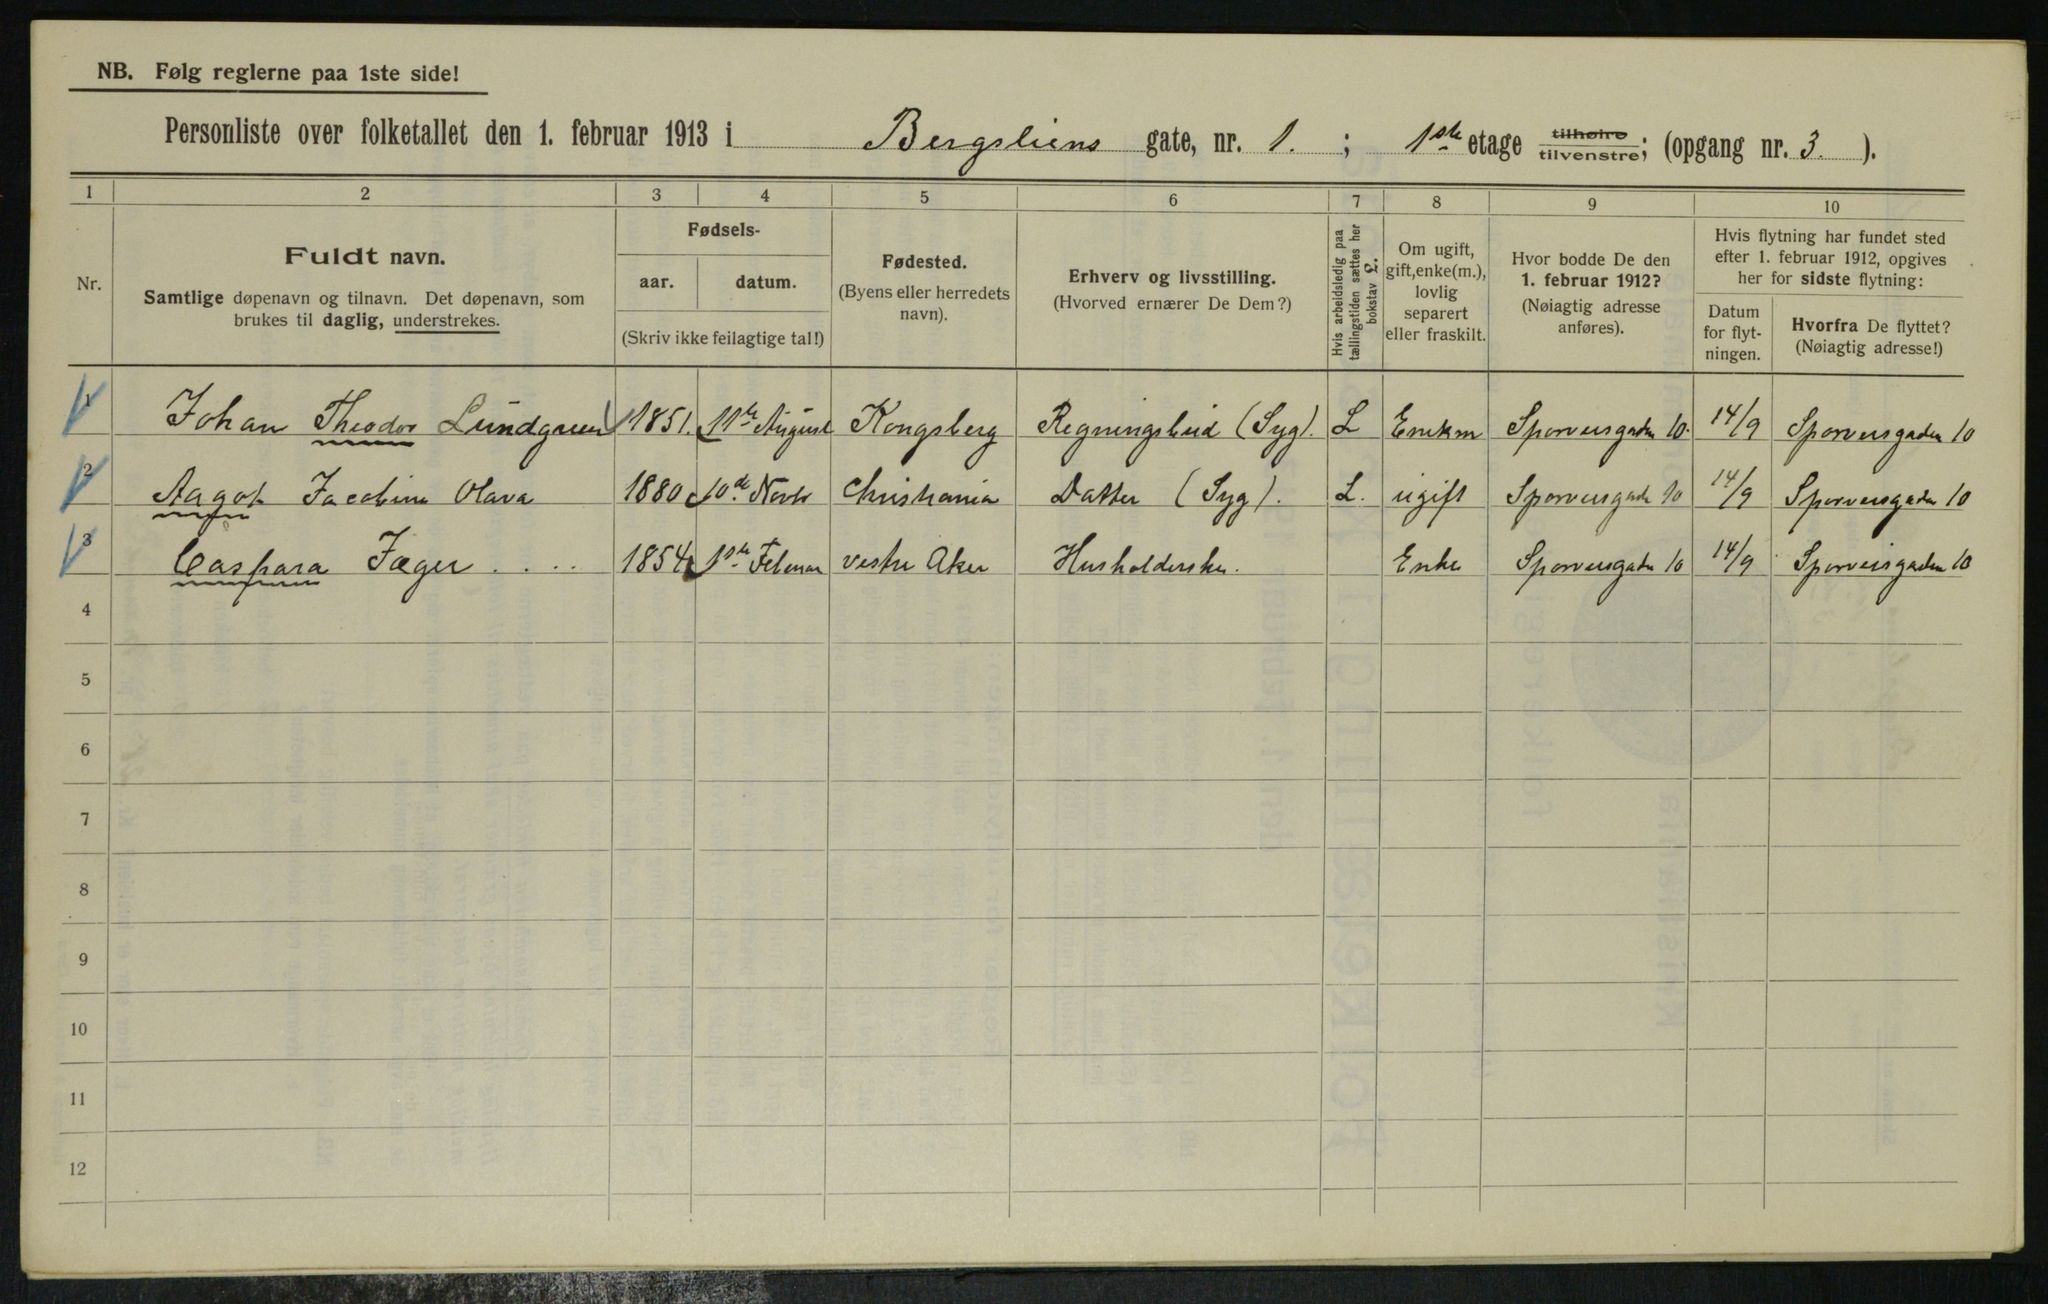 NB. Følg reglerne paa 1ste side!
Personliste over folketallet den 1. februar 1913 i Bergsliens gate, nr. 1. ; 1ste etage tilhøire tilvenstre; (opgang nr. 3. ).
1 2 3 4 5 6 7 8 9 10
Nr.
Fuldt navn.
Samtlige døpenavn og tilnavn. Det døpenavn, som
brukes til daglig, understrekes.
Fødsels-
aar. datum.
(Skriv ikke feilagtige tal!)
Fødested.
(Byens eller herredets
navn).
Erhverv og livsstilling.
(Hvorved ernærer De Dem?)
Hvis arbeidsledig paa
tællingstiden sættes her
bokstav L.
Om ugift,
gift, enke(m.),
lovlig
separert
eller fraskilt.
Hvor bodde De den
1. februar 1912?
(Nøiagtig adresse
anføres).
Hvis flytning har fundet sted
efter 1. februar 1912, opgives
her for sidste flytning:
Datum
for flyt-
ningen.
Hvorfra De flyttet?
(Nøiagtig adresse!)
1 Johan Theodor Lundgreen 1851. 11te August Kongsberg (Syg). L Enkm Sporveisgaden 10. 14/9 Sporveisgaden 10
2 Aagot Jacobine Olava 1880 10de Novbr Christiania Datter (Syg). L. ugift Sporveisgade 10 14/9 Sporveisgaden 10
3 Caspara Jæger . . . . 1854 1ste Februar vestre Aker Husholderske. Enke Sporveisgade 10 14/9 Sporveisgaden 10
4
5
6
7
8
9
10
11
12